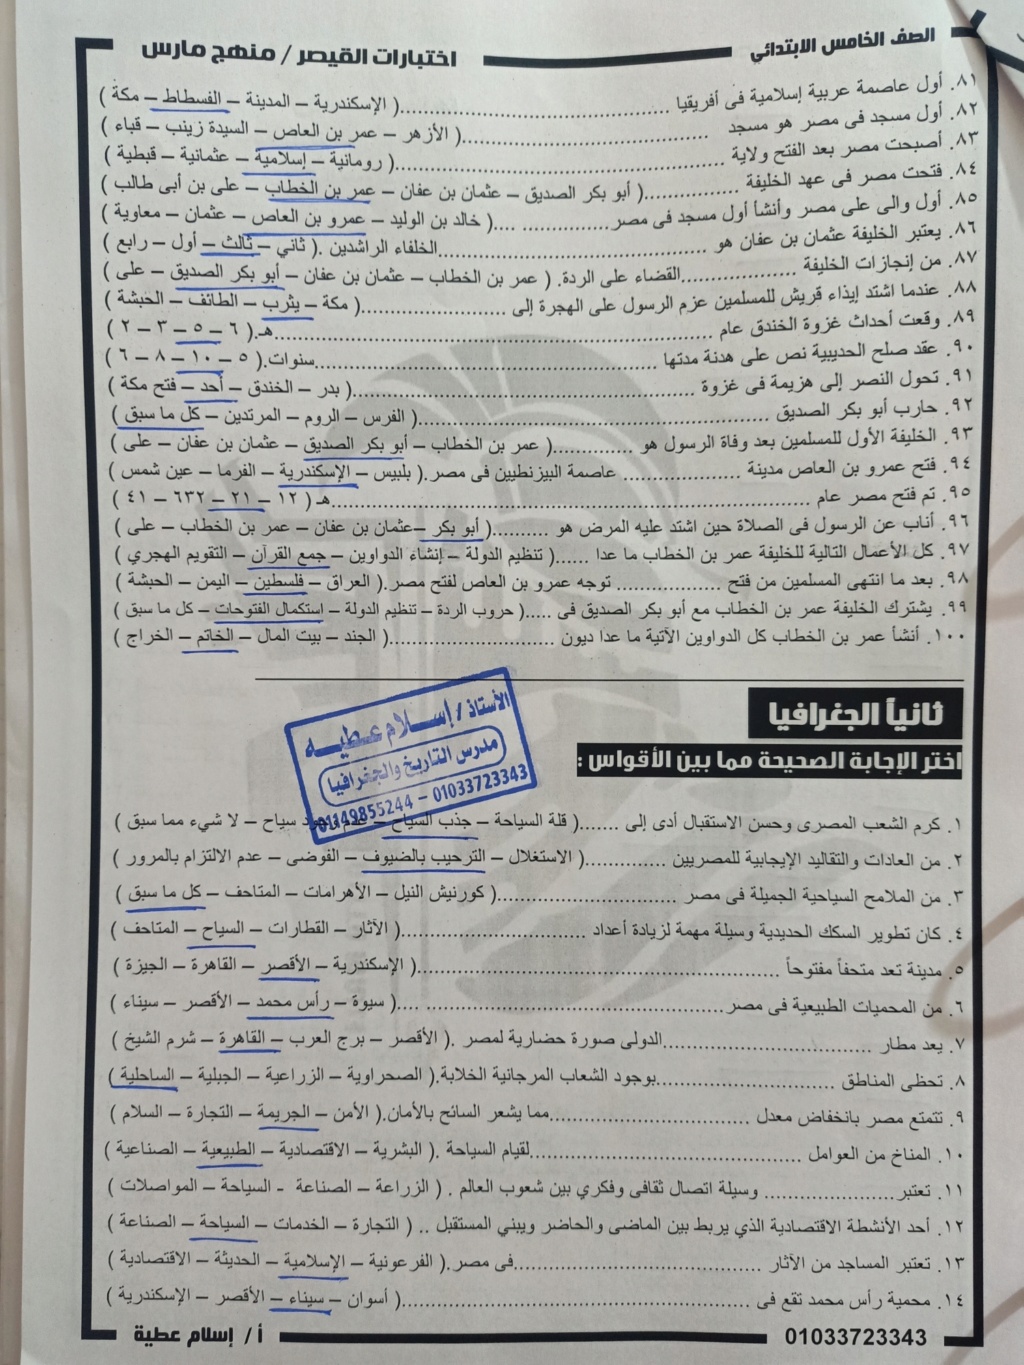 الصف الخامس الابتدائي
اختبارات القيصر / منهج مارس
٨١. أول عاصمة عربية إسلامية فى أفريقيا ........................( الإسكندرية – المدينة – الفسطاط – مكة )
٨٢. أول مسجد فى مصر هو مسجد ........................( الأزهر – عمر بن العاص – السيدة زينب – قباء )
٨٣. أصبحت مصر بعد الفتح ولاية ........................( رومانية – إسلامية – عثمانية – قبطية )
٨٤. فتحت مصر فى عهد الخليفة ............( أبو بكر الصديق – عثمان بن عفان – عمر بن الخطاب – على بن أبى طالب )
٨٥. أول والى على مصر وأنشأ أول مسجد فى مصر................ ....( خالد بن الوليد – عمرو بن العاص – عثمان – معاوية )
٨٦. يعتبر الخليفة عثمان بن عفان هو ........................الخلفاء الراشدين .( ثاني – ثالث – أول – رابع )
٨٧. من إنجازات الخليفة ................القضاء على الردة. ( عمر بن الخطاب – عثمان بن عفان – أبو بكر الصديق – على )
٨٨. عندما اشتد إيذاء قريش للمسلمين عزم الرسول على الهجرة إلى ................( مكة – يثرب – الطائف – الحبشة )
٨٩. وقعت أحداث غزوة الخندق عام ........................هـ.( ٦ – ٥ – ٣ – ٢ )
٩٠. عقد صلح الحديبية نص على هدنة مدتها ........................سنوات.( ٥ – ١٠ – ٨ – ٦ )
٩١. تحول النصر إلى هزيمة فى غزوة ........................( بدر – الخندق – أحد – فتح مكة )
٩٢. حارب أبو بكر الصديق ........................( الفرس – الروم – المرتدين – كل ما سبق )
٩٣. الخليفة الأول للمسلمين بعد وفاة الرسول هو ............( عمر بن الخطاب – أبو بكر الصديق – عثمان بن عفان – على )
٩٤. فتح عمرو بن العاص مدينة ................ عاصمة البيزنطيين فى مصر.( بلبيس – الإسكندرية – الفرما – عين شمس )
٩٥. تم فتح مصر عام ........................هـ ( ١٢ – ٢١ – ٦٣٢ – ٤١ )
٩٦. أناب عن الرسول فى الصلاة حين اشتد عليه المرض هو ..........( أبو بكر –عثمان بن عفان – عمر بن الخطاب – على )
٩٧. كل الأعمال التالية للخليفة عمر بن الخطاب ما عدا ......( تنظيم الدولة – إنشاء الدواوين – جمع القرآن – التقويم الهجري )
٩٨. بعد ما انتهى المسلمين من فتح ................ توجه عمرو بن العاص لفتح مصر.( العراق – فلسطين – اليمن – الحبشة )
٩٩. يشترك الخليفة عمر بن الخطاب مع أبو بكر الصديق فى .....( حروب الردة – تنظيم الدولة – استكمال الفتوحات – كل ما سبق )
١٠٠. أنشأ عمر بن الخطاب كل الدواوين الآتية ما عدا ديون ....................( الجند – بيت المال – الخاتم – الخراج )
الأستاذ / إسلام عطيه
مدرس التاريخ والجغرافيا
01149855244 – 01033723343
ثانياً الجغرافيا
اختر الإجابة الصحيحة مما بين الأقواس :
١. كرم الشعب المصرى وحسن الاستقبال أدى إلى .......( قلة السياحة – جذب السياح – عدم وجود سياح – لا شيء مما سبق )
٢. من العادات والتقاليد الإيجابية للمصريين ............( الاستغلال – الترحيب بالضيوف – الفوضى – عدم الالتزام بالمرور )
٣. من الملامح السياحية الجميلة فى مصر ....................( كورنيش النيل – الأهرامات – المتاحف – كل ما سبق )
٤. كان تطوير السكك الحديدية وسيلة مهمة لزيادة أعداد ....................( الآثار – القطارات – السياح – المتاحف )
٥. مدينة تعد متحفاً مفتوحاً ........................( الإسكندرية – الأقصر – القاهرة – الجيزة )
٦. من المحميات الطبيعية فى مصر........................ ....( سيوة – رأس محمد – الأقصر – سيناء )
٧. يعد مطار ........................الدولى صورة حضارية لمصر .( الأقصر – برج العرب – القاهرة – شرم الشيخ )
٨. تحظى المناطق ....................بوجود الشعاب المرجانية الخلابة.( الصحراوية – الزراعية – الجبلية – الساحلية )
٩. تتمتع مصر بانخفاض معدل ....................مما يشعر السائح بالأمان.( الأمن – الجريمة – التجارة – السلام )
١٠. المناخ من العوامل ........................لقيام السياحة .( البشرية – الاقتصادية – الطبيعية – الصناعية )
١١. تعتبر................ وسيلة اتصال ثقافى وفكري بين شعوب العالم . ( الزراعة – الصناعة - السياحة – المواصلات )
١٢. أحد الأنشطة الاقتصادية الذي يربط بين الماضى والحاضر ويبني المستقبل .. ( التجارة – الخدمات – السياحة – الصناعة )
١٣. تعتبر المساجد من الآثار ........................فى مصر.( الفرعونية – الإسلامية – الحديثة – الاقتصادية )
١٤. محمية رأس محمد تقع فى ........................( أسوان – سيناء – الأقصر – الإسكندرية )
01033723343
أ / إسلام عطية